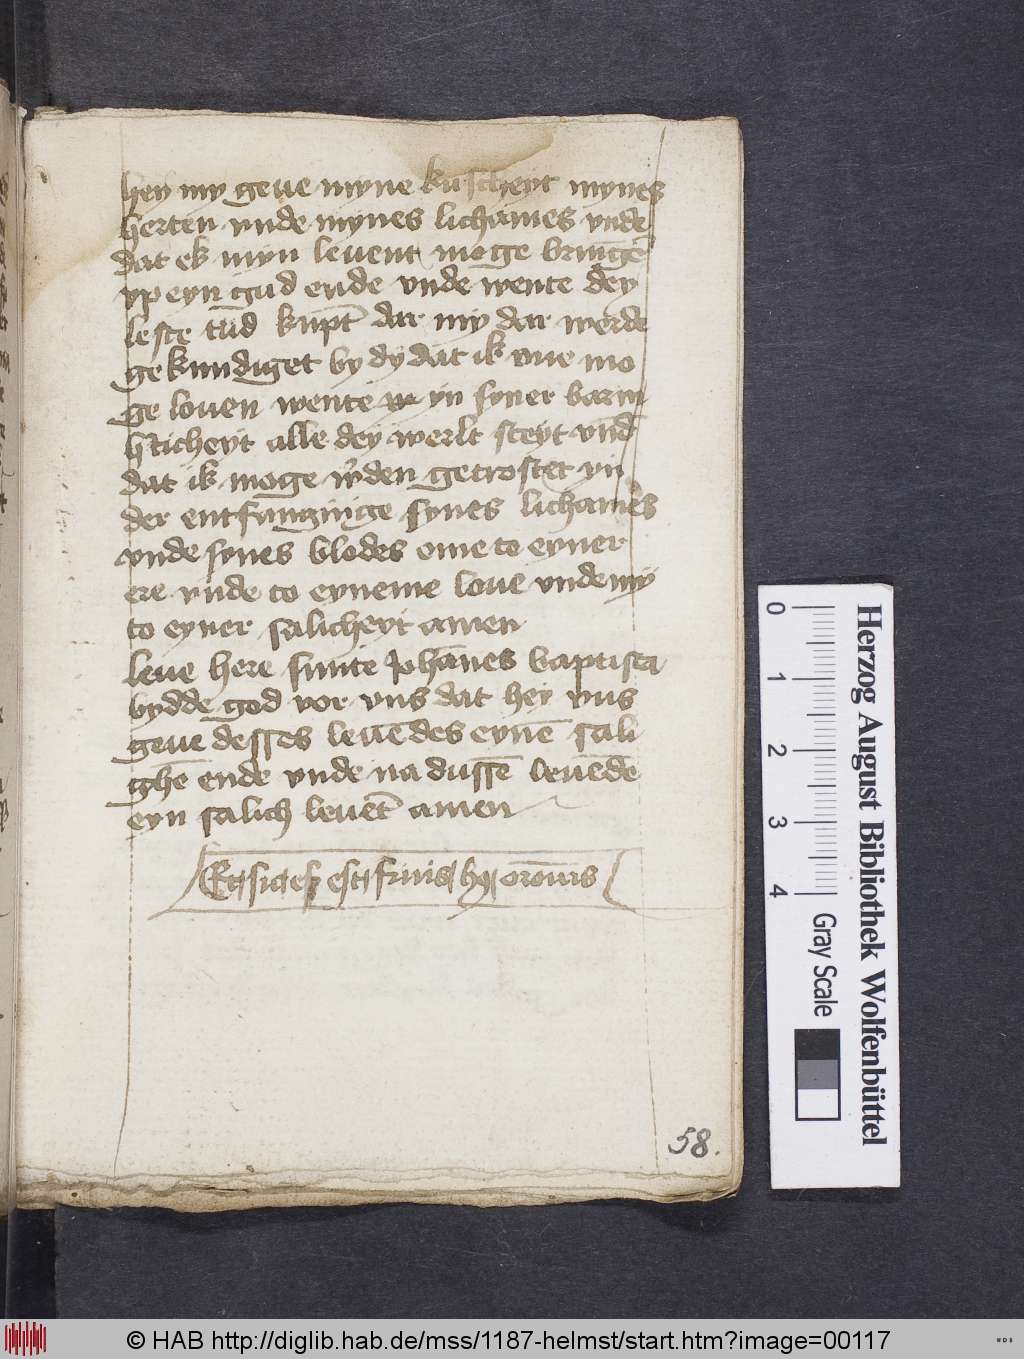 hey my geue myne kuscheyt mynes
herten vnde mynes lichames vnde
dat ek myn leuent moge bringē
vp eyn gud ende vnde wente dey
leste tūd kūpt dar my dar werde
gekundiget by dy dat ik vne mo
ge louen wente yn syner barm
h'ticheyt alle dey werlt steyt vnd
dat ik moge w'den getrostet yn
der entfanginge synes lichames
vnde synes blodes ome to eyner
ere vnde to eyneme loue vnde my
to eyner salicheyt amen
leue here sunte Johānes baptista
bydde god vor vns dat hey vns
geue desses leuēdes eynē sali
ghē ende vnde na dussē leuēde
eyn salich leuēt amen
Et sic est finis orōnis
58.
Herzog August Bibliothek Wolfenbüttel
0 1 2 3 4 Gray Scale
© HAB http://diglib.hab.de/mss/1187-helmst/start.htm?image=00117